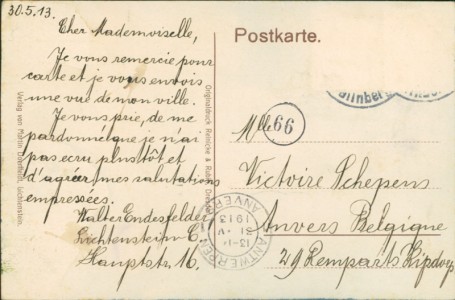 30.5.13.
Cher Mademoiselle,
Je vous remercie pour
carte et je vous envois
une vue de mon ville.
Je vous prie, de me
pardonné que je n'ai
pas ecru plus tôt et
d'agréer mes salutations
empressées.
Walter Endesfelder
Lichtenstein-C.
Hauptstr. 16.
Verlag von Martin Lichtenstein.
Originaldruck Reinicke &
Postkarte.
Mlle
99
Victoire Schepens
Anvers Belgique
29 Remparts Kipdorp
ANTWERPEN
13-14
31 V
1913
ANVERS